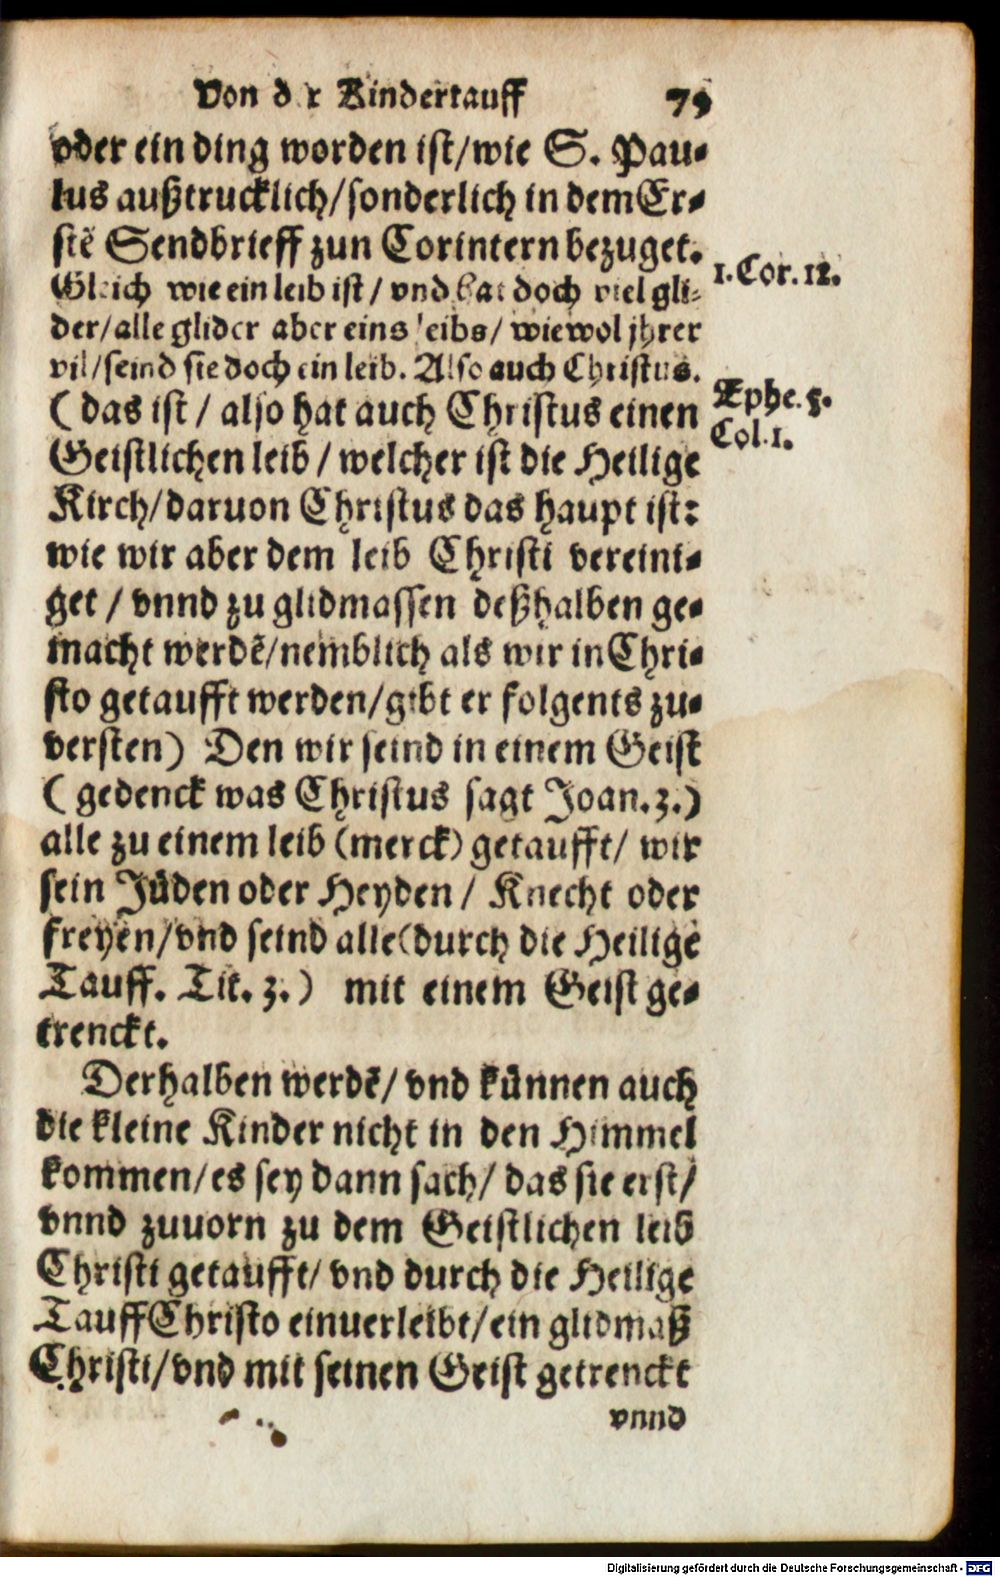 Von d r Kindertauff 79
oder ein ding worden ist/wie S. Pau-
lus außtrucklich/sonderlich in dem Er-
stẽ Sendbrieff zun Corintern bezuget.
1. Cor. 12.
Gleich wie ein leib ist/ vnd hat doch viel gli-
der/alle glider aber eins leibs/ wiewol jhrer
vil/seind sie doch ein leib. Also auch Christus.
(das ist/ also hat auch Christus einen
Ephe. 5.
Col. 1.
Geistlichen leib/ welcher ist die Heilige
Kirch/daruon Christus das haupt ist:
wie wir aber dem leib Christi vereini-
get/ vnnd zu glidmassen deßhalben ge-
macht werdẽ/nemblich als wir in Chri-
sto getaufft werden/gibt er folgents zu-
versten) Den wir seind in einem Geist
(gedenck was Christus sagt Joan. 3.)
alle zu einem leib (merck) getaufft/ wir
sein Jůden oder Heyden/ Knecht oder
freyen/vnd seind alle (durch die Heilige
Tauff. Tit. 3.) mit einem Geist ge-
trenckt.
Derhalben werdẽ/ vnd künnen auch
die kleine Kinder nicht in den Himmel
kommen/es sey dann sach/ das sie erst/
vnnd zuuorn zu dem Geistlichen leib
Christi getaufft/ vnd durch die Heilige
Tauff Christo einuerleibt/ein glidmaß
Christi/vnd mit seinen Geist getrenckt
vnnd
Digitalisierung gefördert durch die Deutsche Forschungsgemeinschaft - DFG